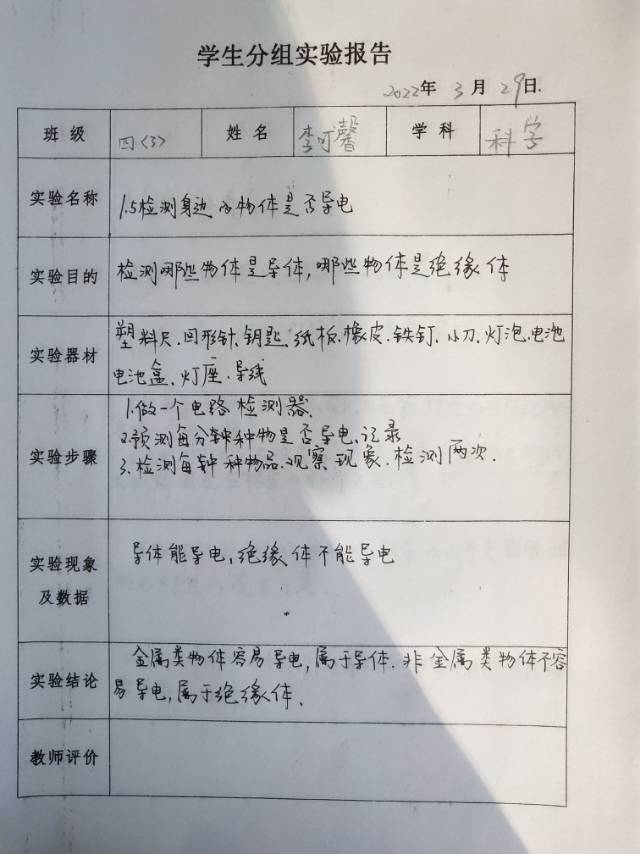 学生分组实验报告
2022年 3月 29日.
班级 四(3) 姓名 李可馨 学科 科学
实验名称 1.5检测身边的物体是否导电
实验目的 检测哪些物体是导体,哪些物体是绝缘体
实验器材 塑料尺.回形针.钥匙.纸板.橡皮.铁钉.小刀.灯泡.电池
电池盒.灯座.导线
实验步骤 1.做一个电路检测器.
2.预测每种物是否导电.记录
3.检测每种物品.观察现象.检测两次.
实验现象
及数据 导体能导电,绝缘体不能导电
实验结论 金属类物体容易导电,属于导体.非金属类物体不容
易导电,属于绝缘体.
教师评价